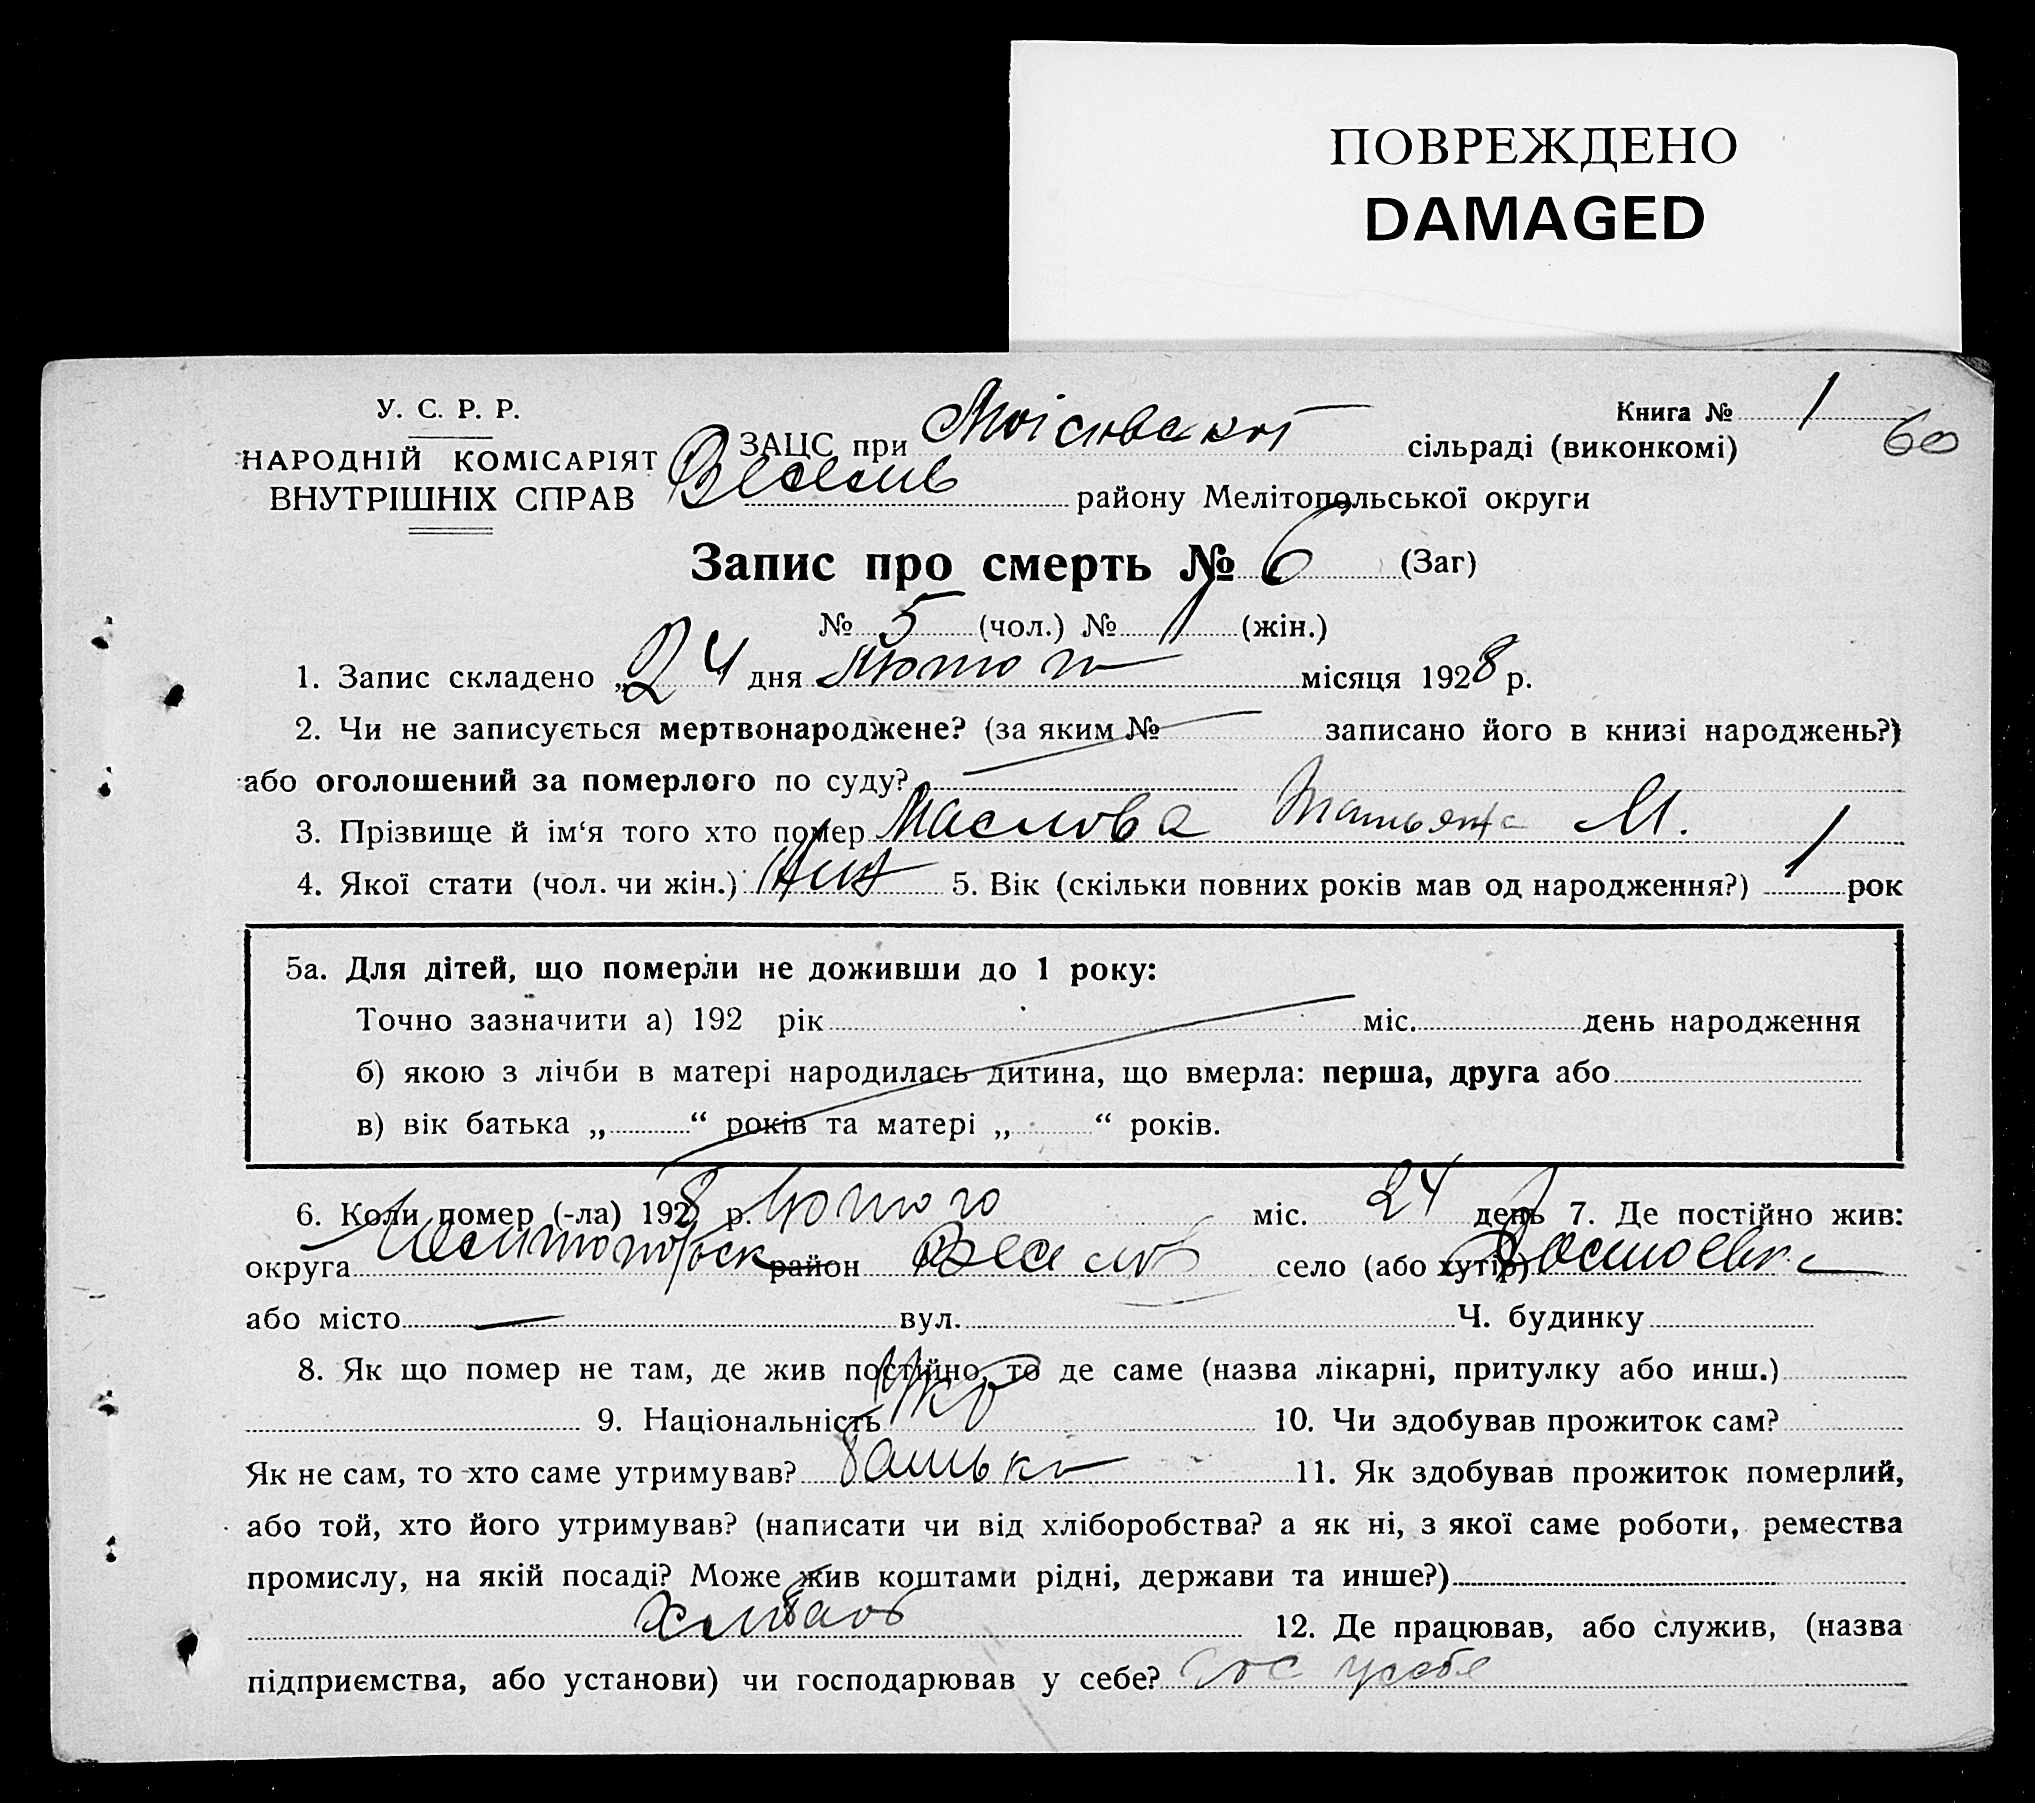 ПОВРЕЖДЕНО
DAMAGED
У. С. Р. Р.
НАРОДНІЙ КОМІСАРІЯТ
ВНУТРІШНІХ СПРАВ
Книга № 1
60
ЗАЦС при сільраді (виконкомі)
Весели району Мелітопольської округи
Запис про смерть № 6 (Заг)
№ 5 (чол.) № 1 (жін.)
1. Запис складено „24 дня лютого місяця 1928 р.
2. Чи не записується мертвонароджене? (за яким № — записано його в книзі народжень?)
або оголошений за померлого по суду? —
3. Прізвище й ім‘я того хто помер Маслова Татьяна М.
4. Якої стати (чол. чи жін.) 5. Вік (скільки повних років мав од народження?) 1 рок
5а. Для дітей, що померли не доживши до 1 року:
Точно зазначити а) 192 рік міс. день народження
б) якою з лічби в матері народилась дитина, що вмерла: перша, друга або
в) вік батька „ “ років та матері „ “ років.
6. Коли помер (-ла) 1928 р. Лютого міс. 24 день 7. Де постійно жив:
округа район Веселов село (або хутір)
або місто — вул. Ч. будинку
8. Як що помер не там, де жив постійно, то де саме (назва лікарні, притулку або инш.)
9. Національність Укр 10. Чи здобував прожиток сам?
Як не сам, то хто саме утримував? батько 11. Як здобував прожиток померлий,
або той, хто його утримував? (написати чи від хліборобства? а як ні, з якої саме роботи, ремества
промислу, на якій посаді? Може жив коштами рідні, держави та инше?)
12. Де працював, або служив, (назва
підприємства, або установи) чи господарював у себе? Гос у себе